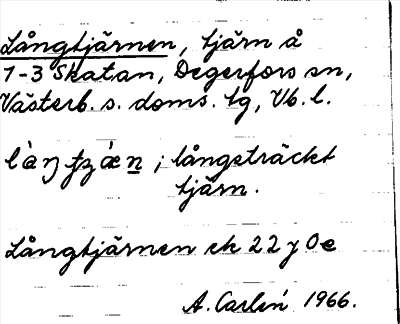 Långtjärnen, tjärn å
1-3 Skatan, Degerfors sn,
Västerb. s. doms. tg, Vb. l.
; långsträckt
tjärn.
Långtjärnen ek 22 y 0e
A. Carlén 1966.